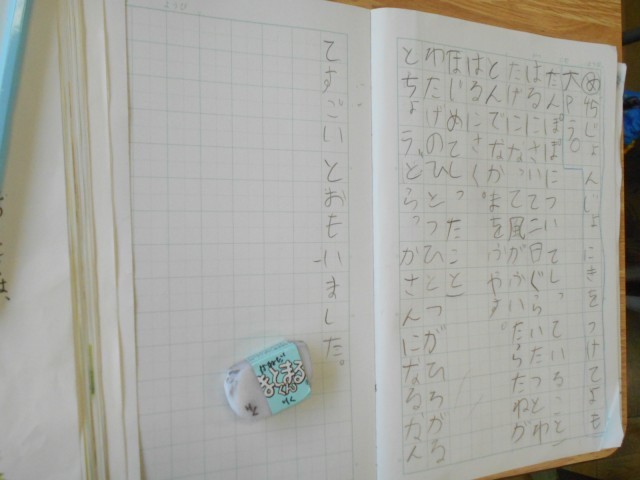 じょんじょにきをつけてよも
たんぽぽについてしっていること
はるにさいて二日ぐらいたつとわ
たげになって風がふいたらたねが
とんでなかまをふやす。
はるにさく
はじめてしったこと
わたげのひとつひとつがひろがる
とちょうどらっかさんになるなん
てすごいとおもいました。
まとまるくん